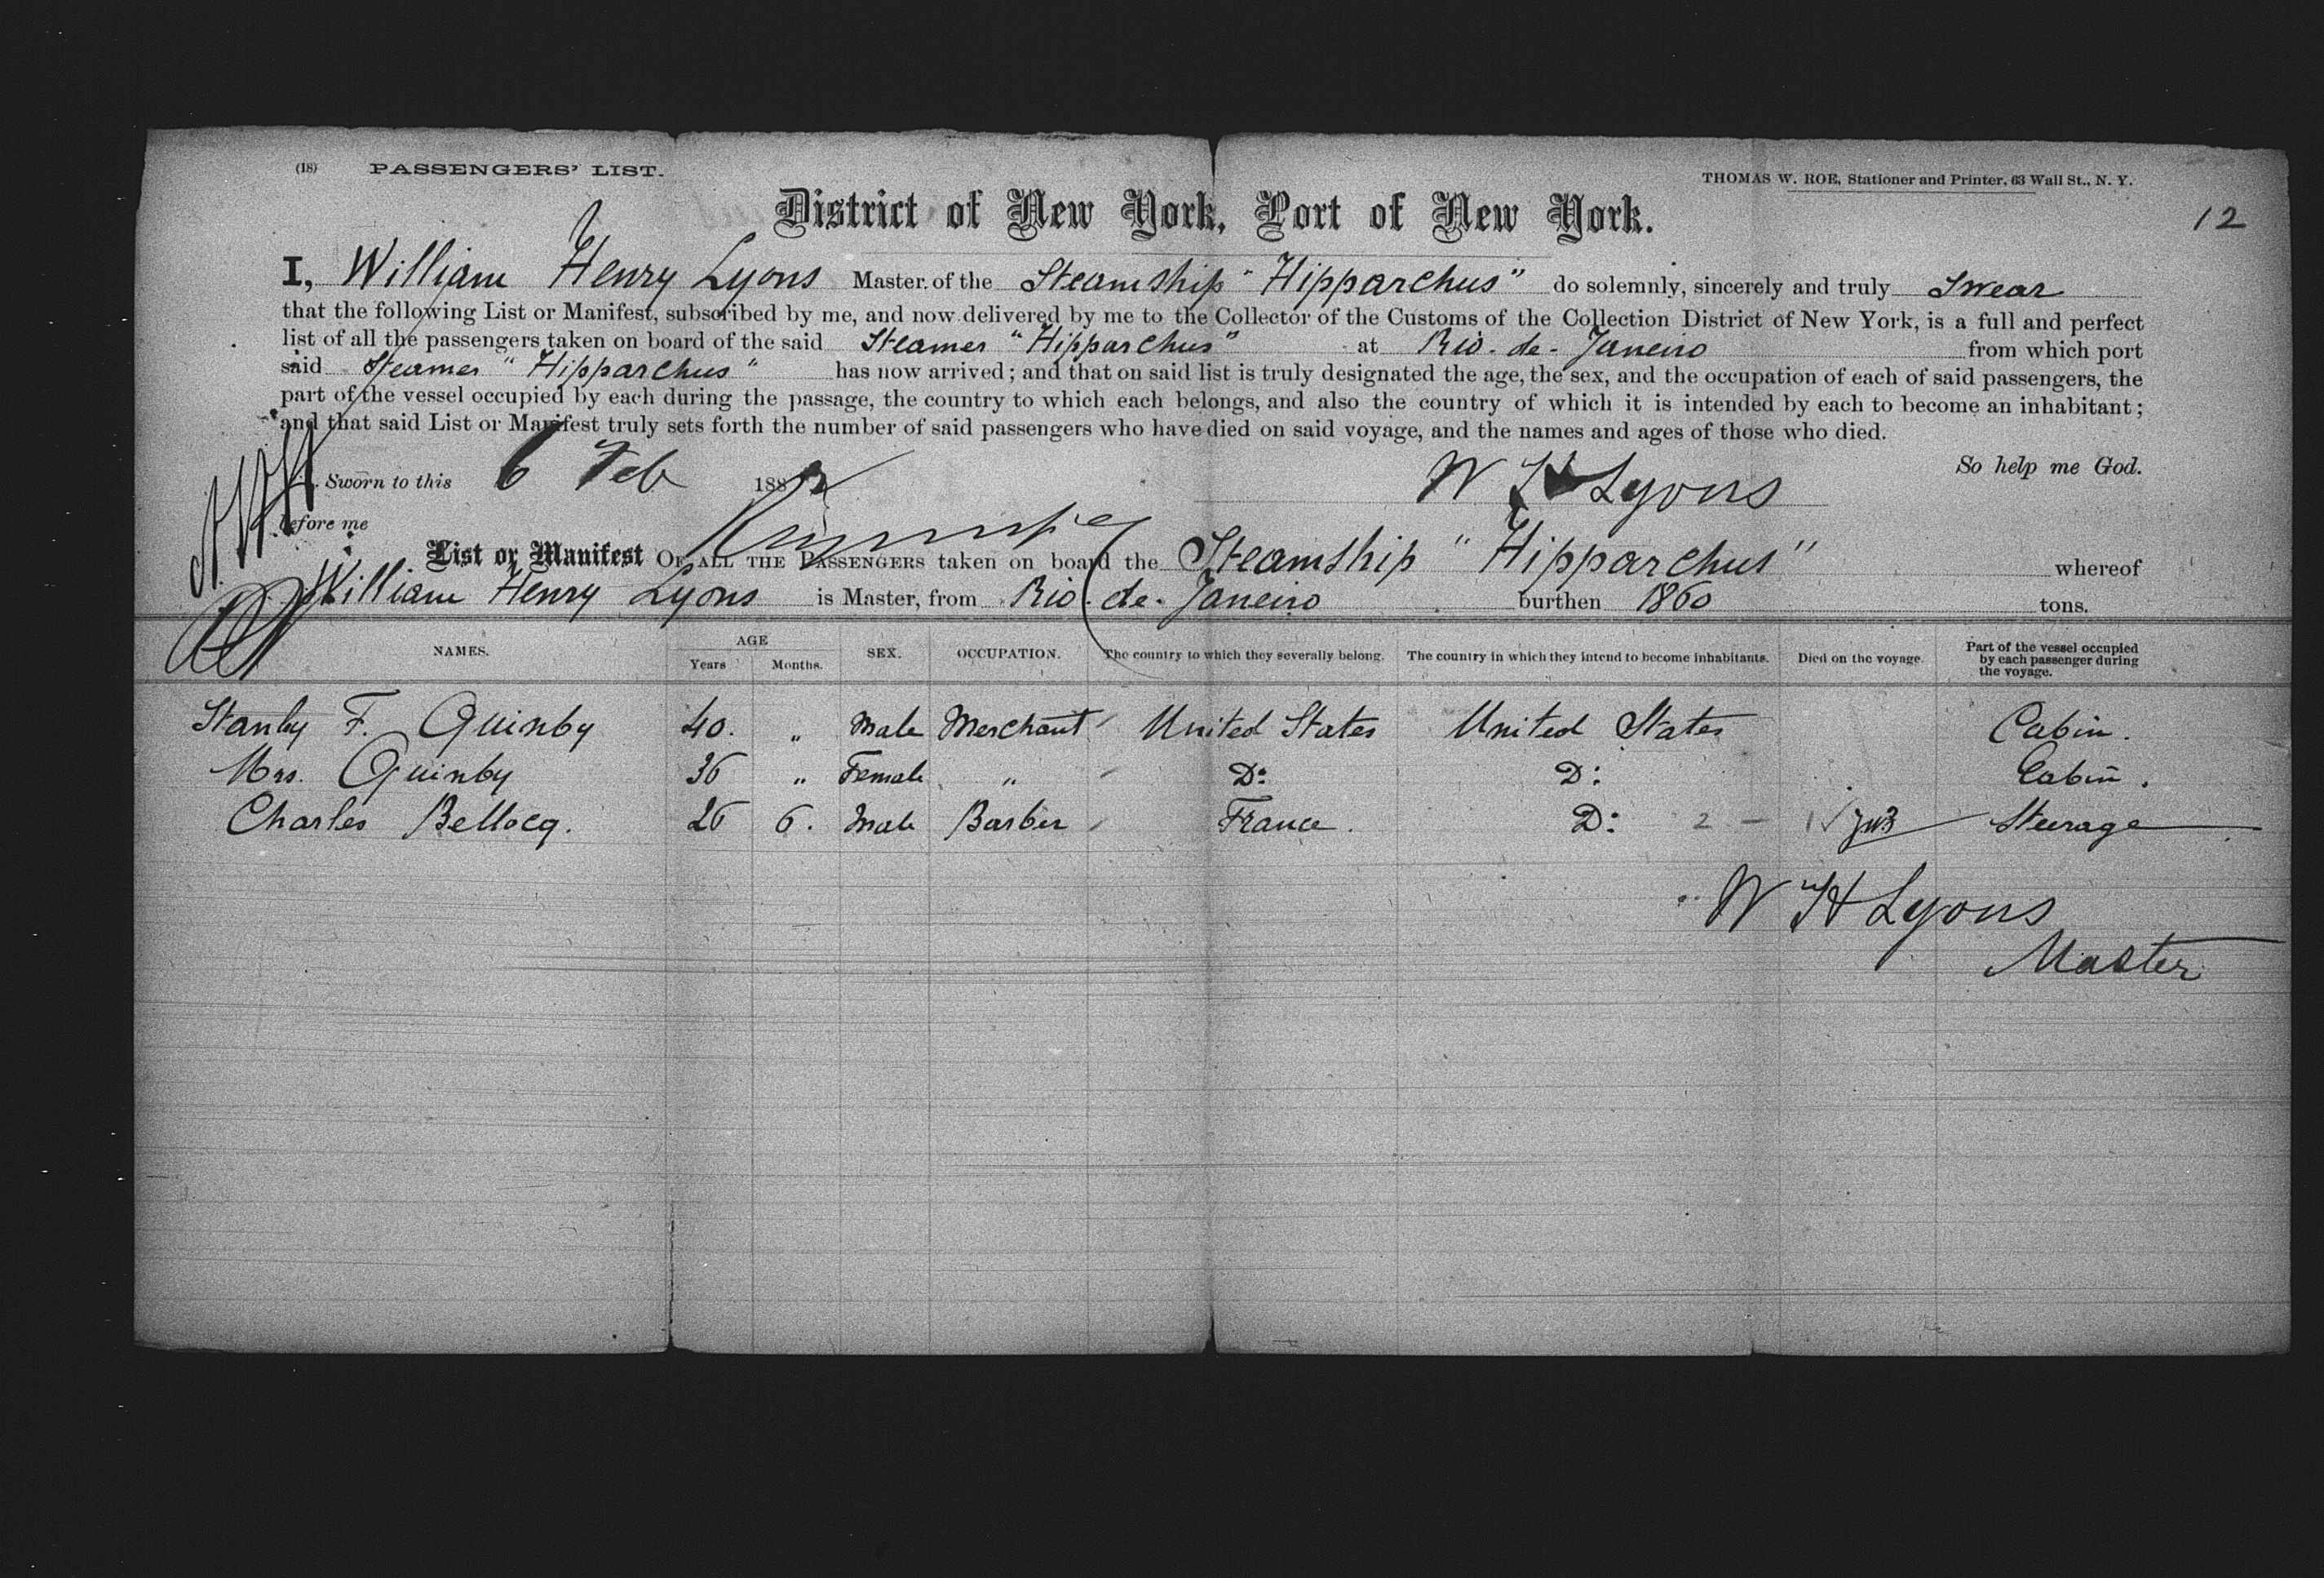 (18) PASSENGERS' LIST.
THOMAS W. ROE, Stationer and Printer, 63 Wall St., N. Y.
District of New York, Port of New York.
12
I, William Henry Lyons Master of the Steamship "Hipparchus" do solemnly, sincerely and truly Swear
that the following List or Manifest, subscribed by me, and now delivered by me to the Collector of the Customs of the Collection District of New York, is a full and perfect
list of all the passengers taken on board of the said Steamer "Hipparchus" at Rio-de-Janeiro from which port
said Steamer "Hipparchus" has now arrived; and that on said list is truly designated the age, the sex, and the occupation of each of said passengers, the
part of the vessel occupied by each during the passage, the country to which each belongs, and also the country of which it is intended by each to become an inhabitant;
and that said List or Manifest truly sets forth the number of said passengers who have died on said voyage, and the names and ages of those who died.
So help me God.
Sworn to this 6 Feb 188
W H Lyons
before me
List or Manifest OF ALL THE PASSENGERS taken on board the Steamship "Hipparchus" whereof
William Henry Lyons is Master, from Rio-de-Janeiro burthen 1860 tons.
NAMES. AGE Years Months. SEX. OCCUPATION. The country to which they severally belong. The country in which they intend to become inhabitants. Died on the voyage. Part of the vessel occupied by each passenger during the voyage.
Stanley F. Quinby 40. " Male Merchant United States United States Cabin.
Mrs. Quinby 36 " Female " Do Do Cabin.
Charles Bellocq. 26 6. Male Barber France. Do 2 - 1 Steerage
W H Lyons
Master